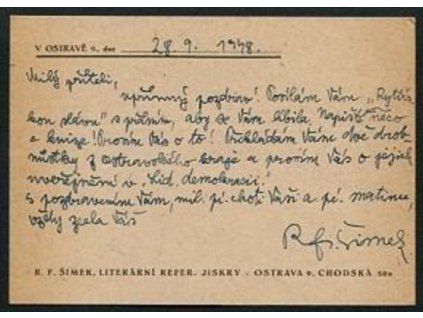 V OSTRAVĚ 9., dne 28. 9. 1948.
Milý příteli,
upřímný pozdrav! Posílám Vám „Rytíř-
kou slávu" s přáním, aby se Vám líbila. Napište něco
o knize! Prosím Vás o to! Přikládám Vám dvě drob-
nůstky z ostravského kraje a prosím Vás o jejich
uveřejnění v „Lid. demokracii."
S pozdravením Vám, mil. pí. choti Vaší a pí. matince,
vždy zcela Váš
R. F. Šimek
R. F. ŠIMEK, LITERÁRNÍ REFER. JISKRY - OSTRAVA 9, CHODSKÁ